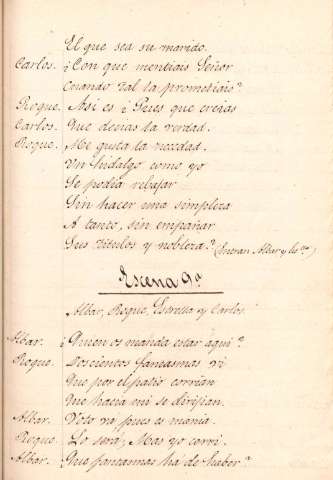 El que sea su marido.
Carlos. ¿Con que mentiais Señor
Cuando tal la prometiais?
Roque. Asi es ¿Pues que creias
Carlos. Que decias la verdad.
Roque. Me gusta la necedad.
Un hidalgo como yo
Se podia rebajar
Sin hacer una simpleza
A tanto, sin empañar
Sus titulos y nobleza? (Entran Albar y
Escena 9ª
Albar, Roque, Estrella y Carlos.
Albar. ¿Quien os manda estar aqui?
Roque. Doscientos fantasmas vi
Que por el patio corrian
Que hacia mi se dirijian.
Albar. Voto va, pues es mania.
Roque. Lo será, Mas yo corri.
Albar. Que fantasmas ha de haber?